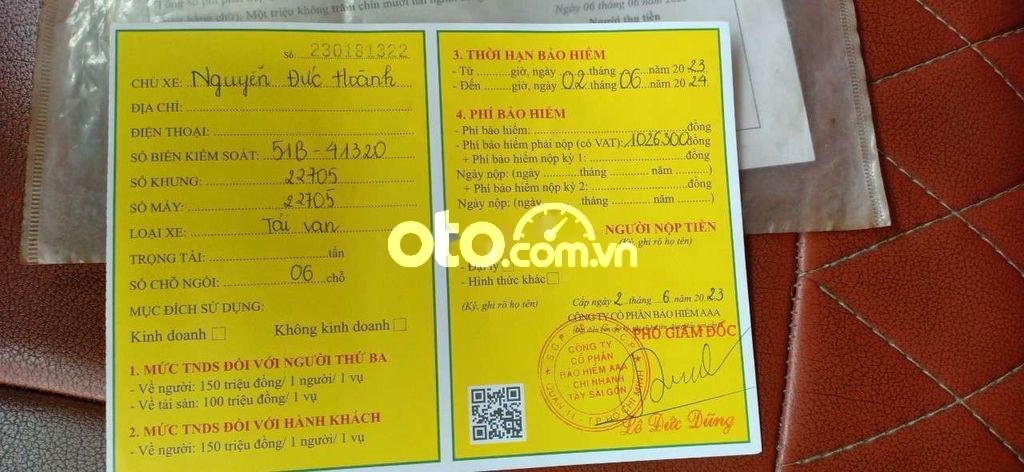 (bằng chữ): Một triệu không trăm chín mươi hai
Ngày 06 tháng 06 năm
Người thu tiền
Số: 230181322
CHỦ XE: Nguyễn Đức Thành
ĐỊA CHỈ:
ĐIỆN THOẠI:
SỐ BIỂN KIỂM SOÁT: 51B-41320
SỐ KHUNG: 22705
SỐ MÁY: 22705
LOẠI XE: Tải van
TRỌNG TẢI: tấn
SỐ CHỖ NGỒI: 06 chỗ
MỤC ĐÍCH SỬ DỤNG:
Kinh doanh Không kinh doanh
1. MỨC TNDS ĐỐI VỚI NGƯỜI THỨ BA
- Về người: 150 triệu đồng/ 1 người/ 1 vụ
- Về tài sản: 100 triệu đồng/ 1 vụ
2. MỨC TNDS ĐỐI VỚI HÀNH KHÁCH
- Về người: 150 triệu đồng/ 1 người/ 1 vụ
3. THỜI HẠN BẢO HIỂM
- Từ ..........giờ, ngày 02 tháng 06 năm 2023
- Đến ........giờ, ngày 02 tháng 06 năm 2024
4. PHÍ BẢO HIỂM
- Phí bảo hiểm: đồng
- Phí bảo hiểm phải nộp (có VAT): 1026300 đồng
+ Phí bảo hiểm nộp kỳ 1: đồng
Ngày nộp: (ngày .............tháng ......... năm ..........)
+ Phí bảo hiểm nộp kỳ 2: đồng
Ngày nộp: (ngày .............tháng ......... năm ..........)
NGƯỜI NỘP TIỀN
(Ký, ghi rõ họ tên)
- Đại lý
- Hình thức khác
(Ký, ghi rõ họ tên)
Cấp ngày 2 tháng 6 năm 2023
CÔNG TY CỔ PHẦN BẢO HIỂM AAA
PHÓ GIÁM ĐỐC
CÔNG TY
CỔ PHẦN
BẢO HIỂM AAA
CHI NHÁNH
TÂY SÀI GÒN
QUẬN 11 T.P HỒ CHÍ MINH
Lê Đức Dũng
oto.com.vn